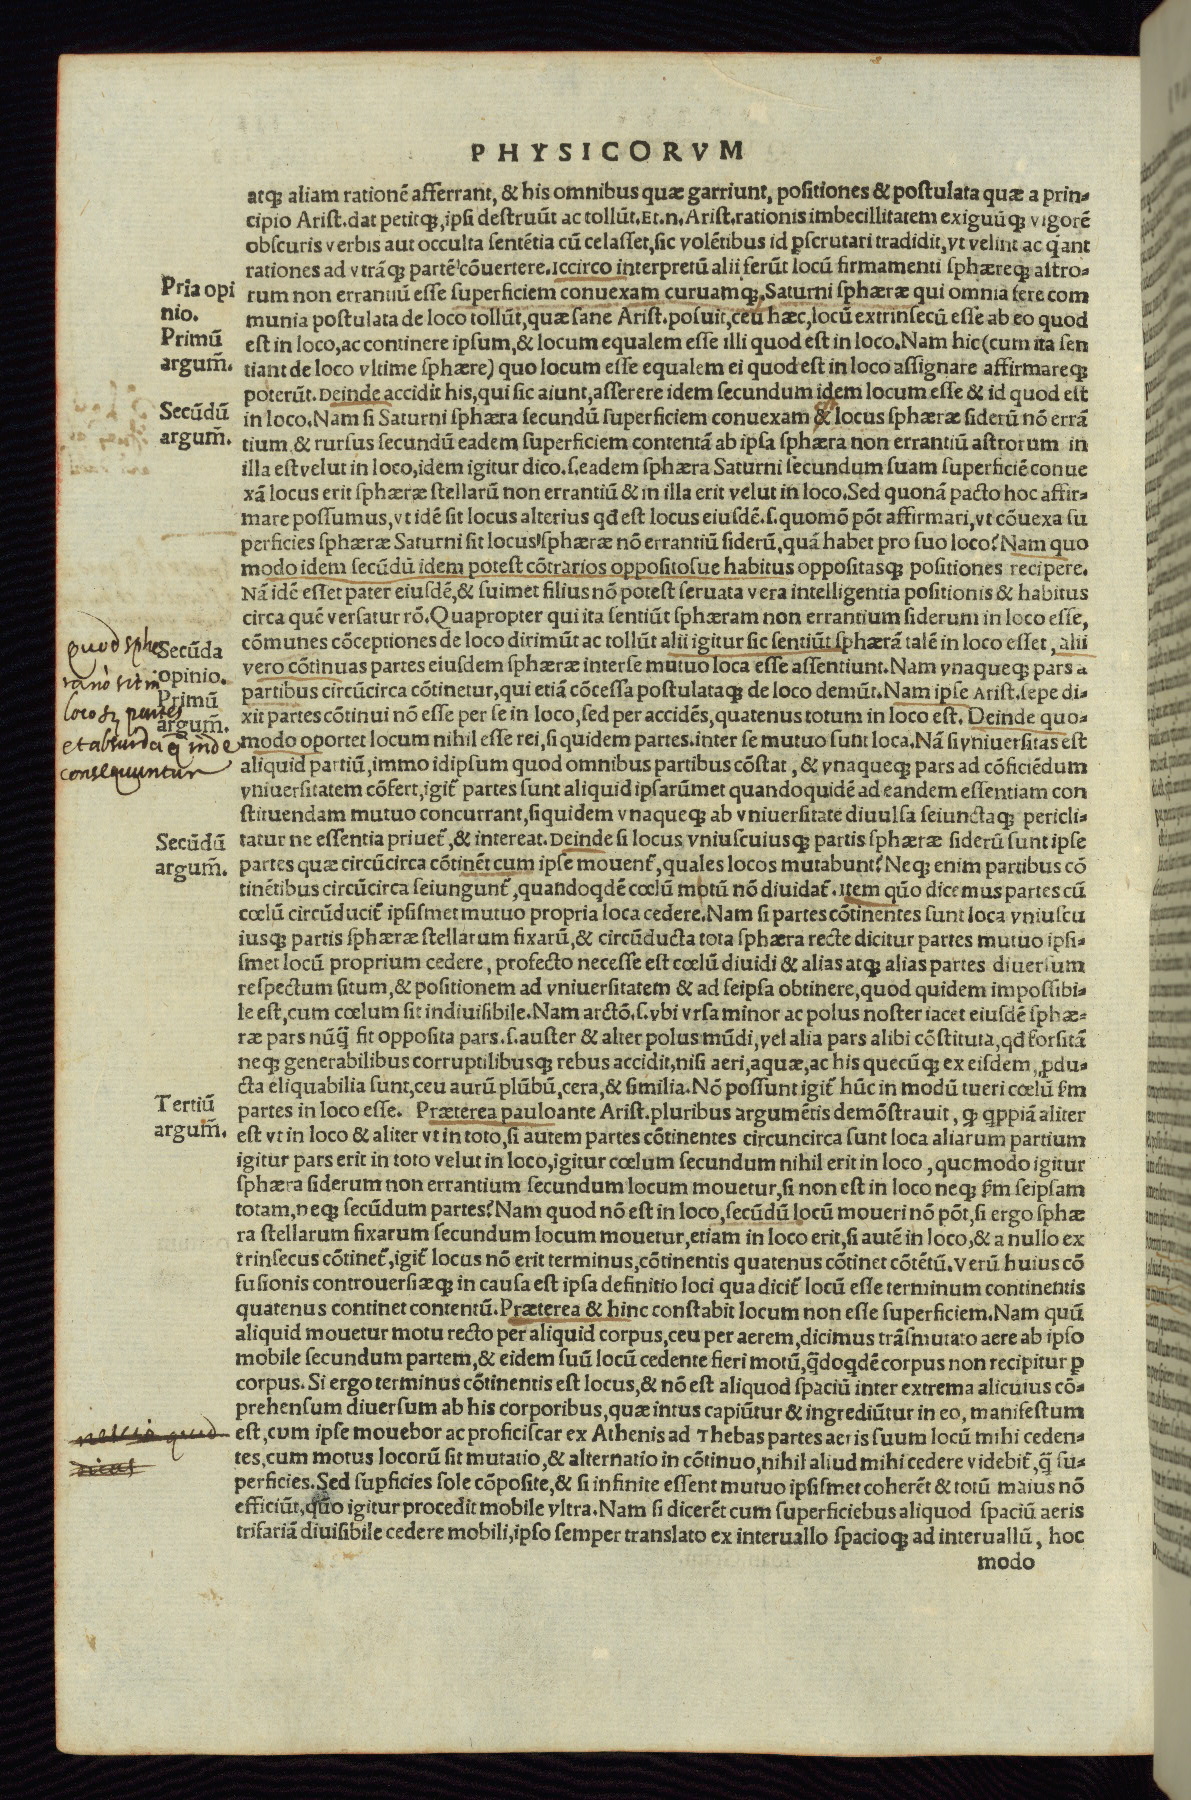 PHYSICORVM
atq; aliam rationē afferrant, & his omnibus quæ garriunt, positiones & postulata quæ a prin-
cipio Arist. dat petitq;, ipsi destruūt ac tollūt. Et .n. Arist. rationis imbecillitatem exiguūq; vigorē
obscuris verbis aut occulta sentētia cū celasset, sic volētibus id ꝑscrutari tradidit, vt velint ac q̃ant
rationes ad vtrāq; partē cōuertere. Iccirco interpretū alii ferūt locū firmamenti sphæreq; astro-
Pria opi
nio.
rum non errantiū esse superficiem conuexam curuamq;. Saturni sphæræ qui omnia fere com
munia postulata de loco tollūt, quæ sane Arist. posuit, ceu hæc, locū extrinsecū esse ab eo quod
Primū
argum̄.
est in loco, ac continere ipsum, & locum equalem esse illi quod est in loco. Nam hic (cum ita sen
tiant de loco vltime sphære) quo locum esse equalem ei quod est in loco assignare affirmareq;
poterūt. Deinde accidit his, qui sic aiunt, asserere idem secundum idem locum esse & id quod est
Secūdū
argum̄.
in loco. Nam si Saturni sphæra secundū superficiem conuexam & locus sphæræ siderū nō errā
tium & rursus secundū eadem superficiem contentā ab ipsa sphæra non errantiū astrorum in
illa est velut in loco, idem igitur dico .s. eadem sphæra Saturni secundum suam superficiē conue
xā locus erit sphæræ stellarū non errantiū & in illa erit velut in loco. Sed quonā pacto hoc affir-
mare possumus, vt idē sit locus alterius qd̄ est locus eiusdē .s. quomō pōt affirmari, vt cōuexa su
perficies sphæræ Saturni sit locus sphæræ nō errantiū siderū, quā habet pro suo loco? Nam quo
modo idem secūdū idem potest cōtrarios oppositosue habitus oppositasq; positiones recipere.
Nā idē esset pater eiusdē, & suimet filius nō potest seruata vera intelligentia positionis & habitus
circa quē versatur rō. Quapropter qui ita sentiūt sphæram non errantium siderum in loco esse,
quod sphe
ra nō sit in
loco sz partes
et absurda q̄ inde
consequuntur
Secūda
opinio.
Primū
argum̄.
cōmunes cōceptiones de loco dirimūt ac tollūt alii igitur sic sentiūt sphærā talē in loco esset, alii
vero cōtinuas partes eiusdem sphæræ inter se mutuo loca esse assentiunt. Nam vnaqueq; pars a
partibus circūcirca cōtinetur, qui etiā cōcessa postulataq; de loco demūt. Nam ipse Arist. sepe di-
xit partes cōtinui nō esse per se in loco, sed per accidēs, quatenus totum in loco est. Deinde quo-
modo oportet locum nihil esse rei, si quidem partes inter se mutuo sunt loca. Nā si vniuersitas est
aliquid partiū, immo idipsum quod omnibus partibus cōstat, & vnaqueq; pars ad cōficiēdum
vniuersitatem cōfert, igit̄ partes sunt aliquid ipsarūmet quandoquidē ad eandem essentiam con
stituendam mutuo concurrant, siquidem vnaqueq; ab vniuersitate diuulsa seiunctaq; pericli-
Secūdū
argum̄.
tatur ne essentia priuet̄, & intereat. Deinde si locus vniuscuiusq; partis sphæræ siderū sunt ipse
partes quæ circūcirca cōtinēt cum ipse mouent̄, quales locos mutabunt? Neq; enim partibus cō
tinētibus circūcirca seiungunt̄, quandoqdē cœlū motū nō diuidat̄. Item quō dicemus partes cū
cœlū circūducit̄ ipsismet mutuo propria loca cedere. Nam si partes cōtinentes sunt loca vniuscu
iusq; partis sphæræ stellarum fixarū, & circūducta tota sphæra recte dicitur partes mutuo ipsi-
smet locū proprium cedere, profecto necesse est cœlū diuidi & alias atq; alias partes diuersum
respectum situm, & positionem ad vniuersitatem & ad seipsa obtinere, quod quidem impossibi-
le est, cum cœlum sit indiuisibile. Nam arctō .s. vbi vrsa minor ac polus noster iacet eiusdē sphæ-
ræ pars nūq̃ fit opposita pars .s. auster & alter polus mūdi, vel alia pars alibi cōstituta, qd̄ forsitā
neq; generabilibus corruptilibusq; rebus accidit, nisi aeri, aquæ, ac his quecūq; ex eisdem ꝓdu-
cta eliquabilia sunt, ceu aurū plūbū, cera, & similia. Nō possunt igit̄ hūc in modū tueri cœlū ẜm
Tertiū
argum̄.
partes in loco esse. Præterea pauloante Arist. pluribus argumētis demōstrauit, q; qppiā aliter
est vt in loco & aliter vt in toto, si autem partes cōtinentes circuncirca sunt loca aliarum partium
igitur pars erit in toto velut in loco, igitur cœlum secundum nihil erit in loco, quomodo igitur
sphæra siderum non errantium secundum locum mouetur, si non est in loco neq; ẜm seipsam
totam, neq; secūdum partes? Nam quod nō est in loco, secūdū locū moueri nō pōt, si ergo sphæ
ra stellarum fixarum secundum locum mouetur, etiam in loco erit, si autē in loco, & a nullo ex
trinsecus cōtinet̄, igit̄ locus nō erit terminus, cōtinentis quatenus cōtinet cōtētū. Verū huius cō
fusionis controuersiæq; in causa est ipsa definitio loci qua dicit̄ locū esse terminum continentis
quatenus continet contentū. Præterea & hinc constabit locum non esse superficiem. Nam quū
aliquid mouetur motu recto per aliquid corpus, ceu per aerem, dicimus trāsmutato aere ab ipso
mobile secundum partem, & eidem suū locū cedente fieri motū, q̃doqdē corpus non recipitur ꝑ
corpus. Si ergo terminus cōtinentis est locus, & nō est aliquod spaciū inter extrema alicuius cō-
prehensum diuersum ab his corporibus, quæ intus capiūtur & ingrediūtur in eo, manifestum
nescio quod
dicas
est, cum ipse mouebor ac proficiscar ex Athenis ad Thebas partes aeris suum locū mihi ceden-
tes, cum motus locorū sit mutatio, & alternatio in cōtinuo, nihil aliud mihi cedere videbit̄, q̃ su-
perficies. Sed suꝑficies sole cōposite, & si infinite essent mutuo ipsismet coherēt & totū maius nō
efficiūt, quō igitur procedit mobile vltra. Nam si dicerēt cum superficiebus aliquod spaciū aeris
trifariā diuisibile cedere mobili, ipso semper translato ex interuallo spacioq; ad interuallū, hoc
modo